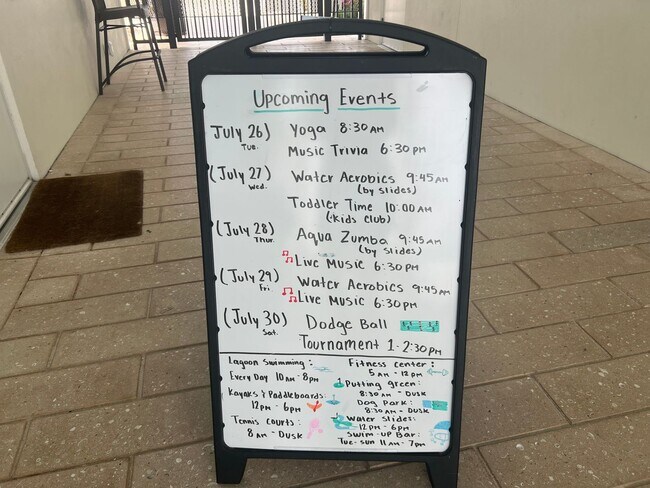 Upcoming Events
July 26) Yoga 8:30 AM
Tue.
Music Trivia 6:30 PM
(July 27) Water Aerobics 9:45 AM
Wed. (by slides)
Toddler Time 10:00 AM
(Kids Club)
(July 28) Aqua Zumba 9:45 AM
Thur. (by slides)
Live Music 6:30 PM
(July 29) Water Aerobics 9:45 AM
Fri Live Music 6:30 PM
(July 30) Dodge Ball
Sat. Tournament 1-2:30 PM
Lagoon Swimming:
Every Day 10 AM - 8 PM
Kayaks & Paddleboards:
12 PM - 6 PM
Tennis Courts:
8 AM - Dusk
Fitness center:
5 AM - 12 PM
Putting green:
8:30 AM - Dusk
Dog Park:
8:30 AM - Dusk
Water slides:
12 PM - 6 PM
Swim-up Bar:
Tue-Sun 11 AM - 7 PM